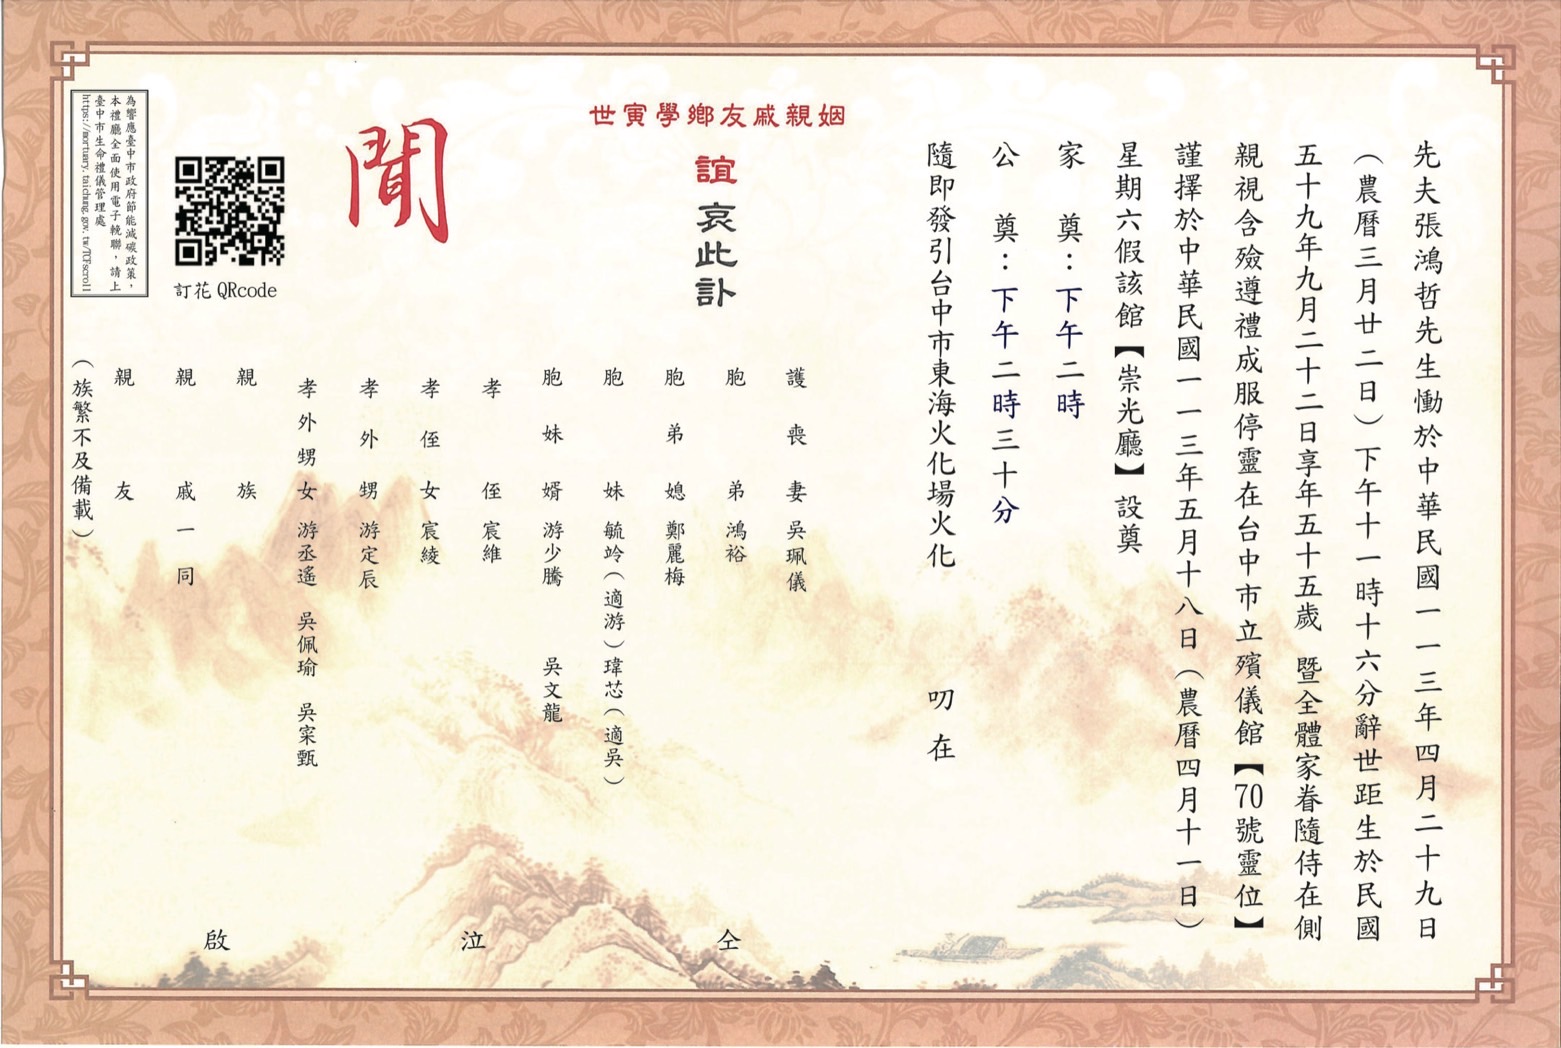 先夫張鴻哲先生慟於中華民國一一三年四月二十九日
（農曆三月廿二日）下午十一時十六分辭世距生於民國
五十九年九月二十二日享年五十五歲 暨全體家眷隨侍在側
親視含殮遵禮成服停靈在台中市立殯儀館【70號靈位】
謹擇於中華民國一一三年五月十八日（農曆四月十一日）
星期六假該館【崇光廳】設奠
家 奠：下午二時
公 奠：下午二時三十分
隨即發引台中市東海火化場火化 叨在
世寅學鄉友戚親姻
誼哀此訃
聞
護喪妻 吳珮儀
胞弟 鴻裕
胞弟媳 鄭麗梅
胞妹 毓竛（適游）瑋芯（適吳）
胞妹婿 游少騰 吳文龍
孝侄 宸維
孝侄女 宸綾
孝外甥 游定辰
孝外甥女 游丞遙 吳佩瑜 吳寀甄
親族
親戚一同
親友
（族繁不及備載）
仝 泣 啟
訂花 QRcode
為響應臺中市政府節能減碳政策，
本禮廳全面使用電子輓聯，請上
臺中市生命禮儀管理處
https://mortuary.taichung.gov.tw/TCFscroll